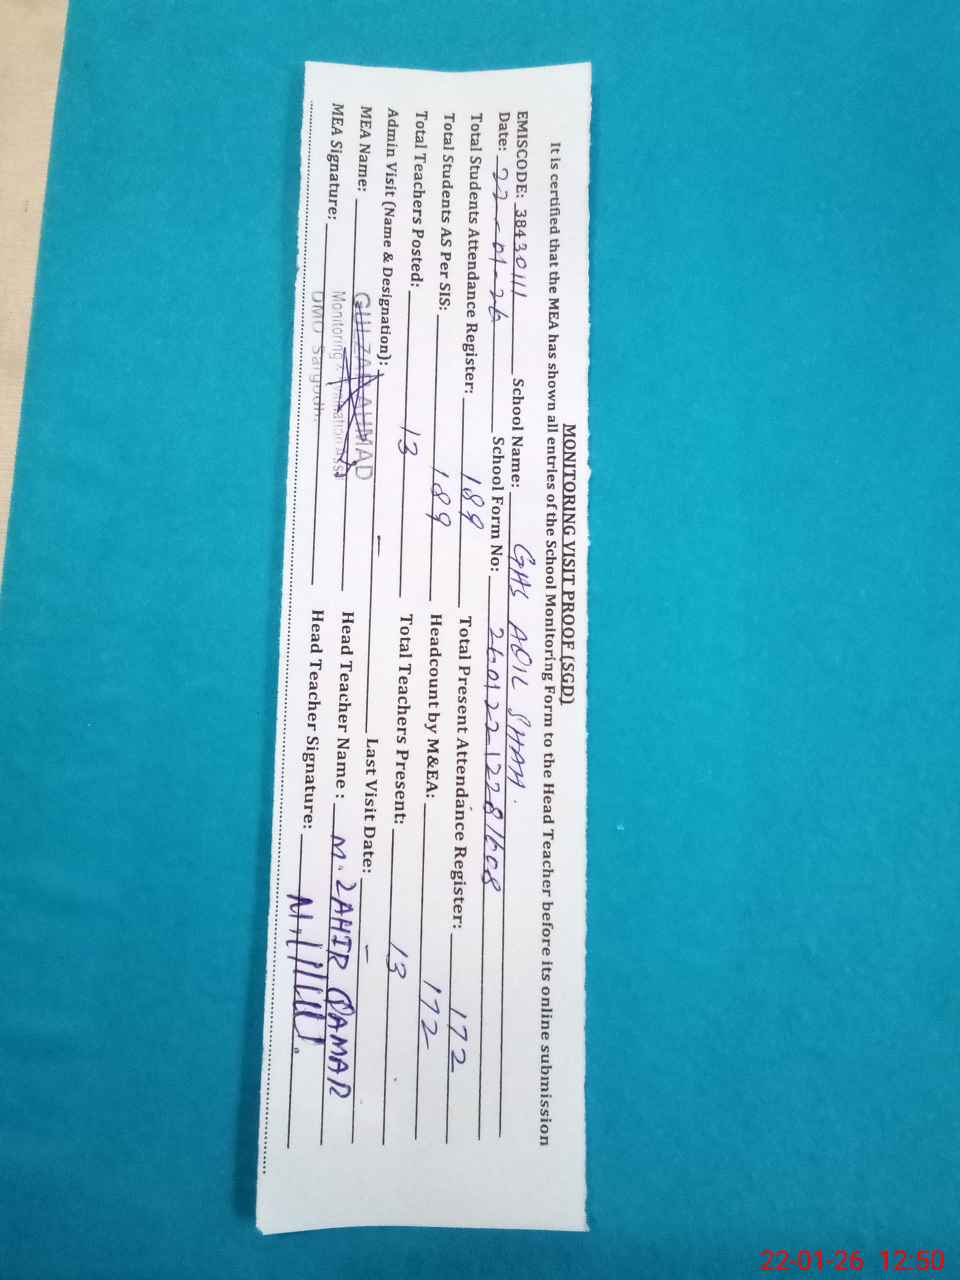 MONITORING VISIT PROOF (SGD)
It is certified that the MEA has shown all entries of the School Monitoring Form to the Head Teacher before its online submission
EMISCODE: 38430111 School Name: GHS ADIL SHAH.
Date: 22-01-26 School Form No: 260122-12281608
Total Students Attendance Register: 189 Total Present Attendance Register: 172
Total Students AS Per SIS: 189 Headcount by M&EA: 172
Total Teachers Posted: 13 Total Teachers Present: 13
Admin Visit (Name & Designation): — Last Visit Date: –
MEA Name: GULZAR AHMAD Head Teacher Name : M. ZAHIR QAMAR
MEA Signature: Monitoring Head Teacher Signature:
DMO Sargodh
22-01-26 12:50